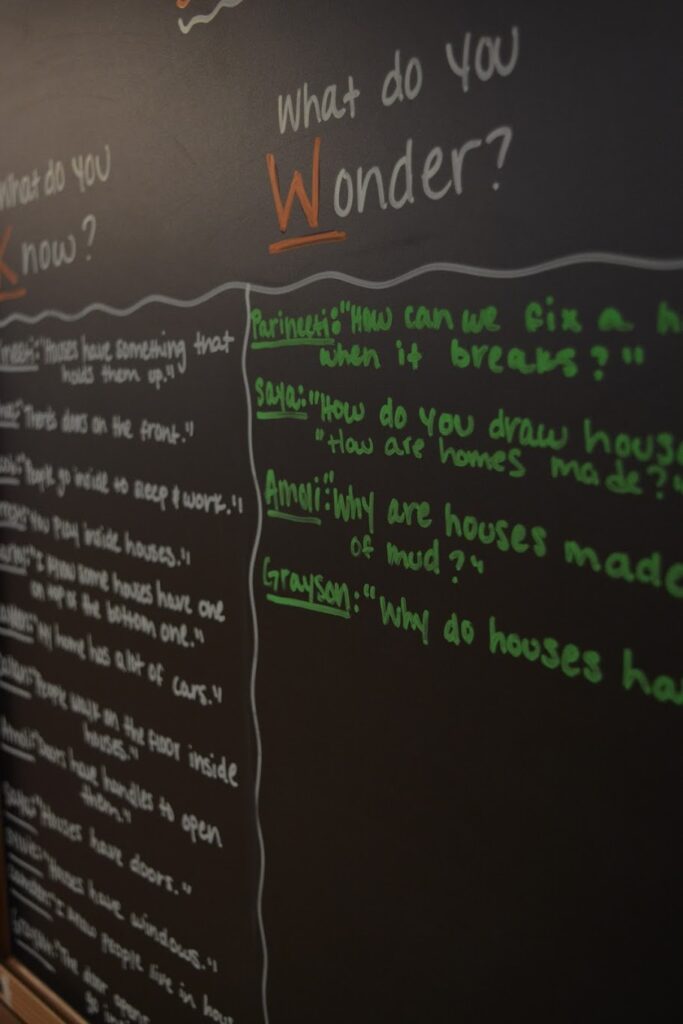 What do you
Know?
"Houses have something that
holds them up."
"There's doors on the front."
"People go inside to sleep & work."
"You play inside houses."
"I know some houses have one
on top of the bottom one."
"My home has a lot of cars."
"People walk on the floor inside
houses."
Amoli: "Doors have handles to open
them."
Saya: "Houses have doors."
"Houses have windows."
"I know people live in hou
Grayson: "The door opens
What do you
Wonder?
Parineeti: "How can we fix a h
when it breaks?"
Saya: "How do you draw house
"How are homes made?"
Amoli: "Why are houses made
of mud?"
Grayson: "Why do houses ha